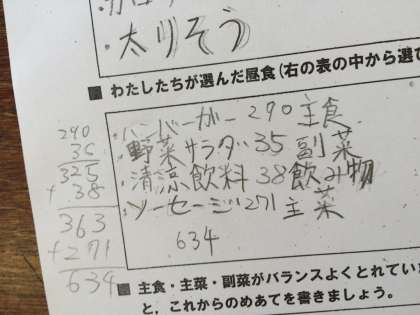 ・太りそう
■ わたしたちが選んだ昼食(右の表の中から選び
・ハンバーガー 290 主食
・野菜サラダ 35 副菜
・清涼飲料 38 飲み物
・ソーセージ 271 主菜
634
290
35
325
+ 38
363
+271
634
■ 主食・主菜・副菜がバランスよくとれてい
と，これからのめあてを書きましょう。